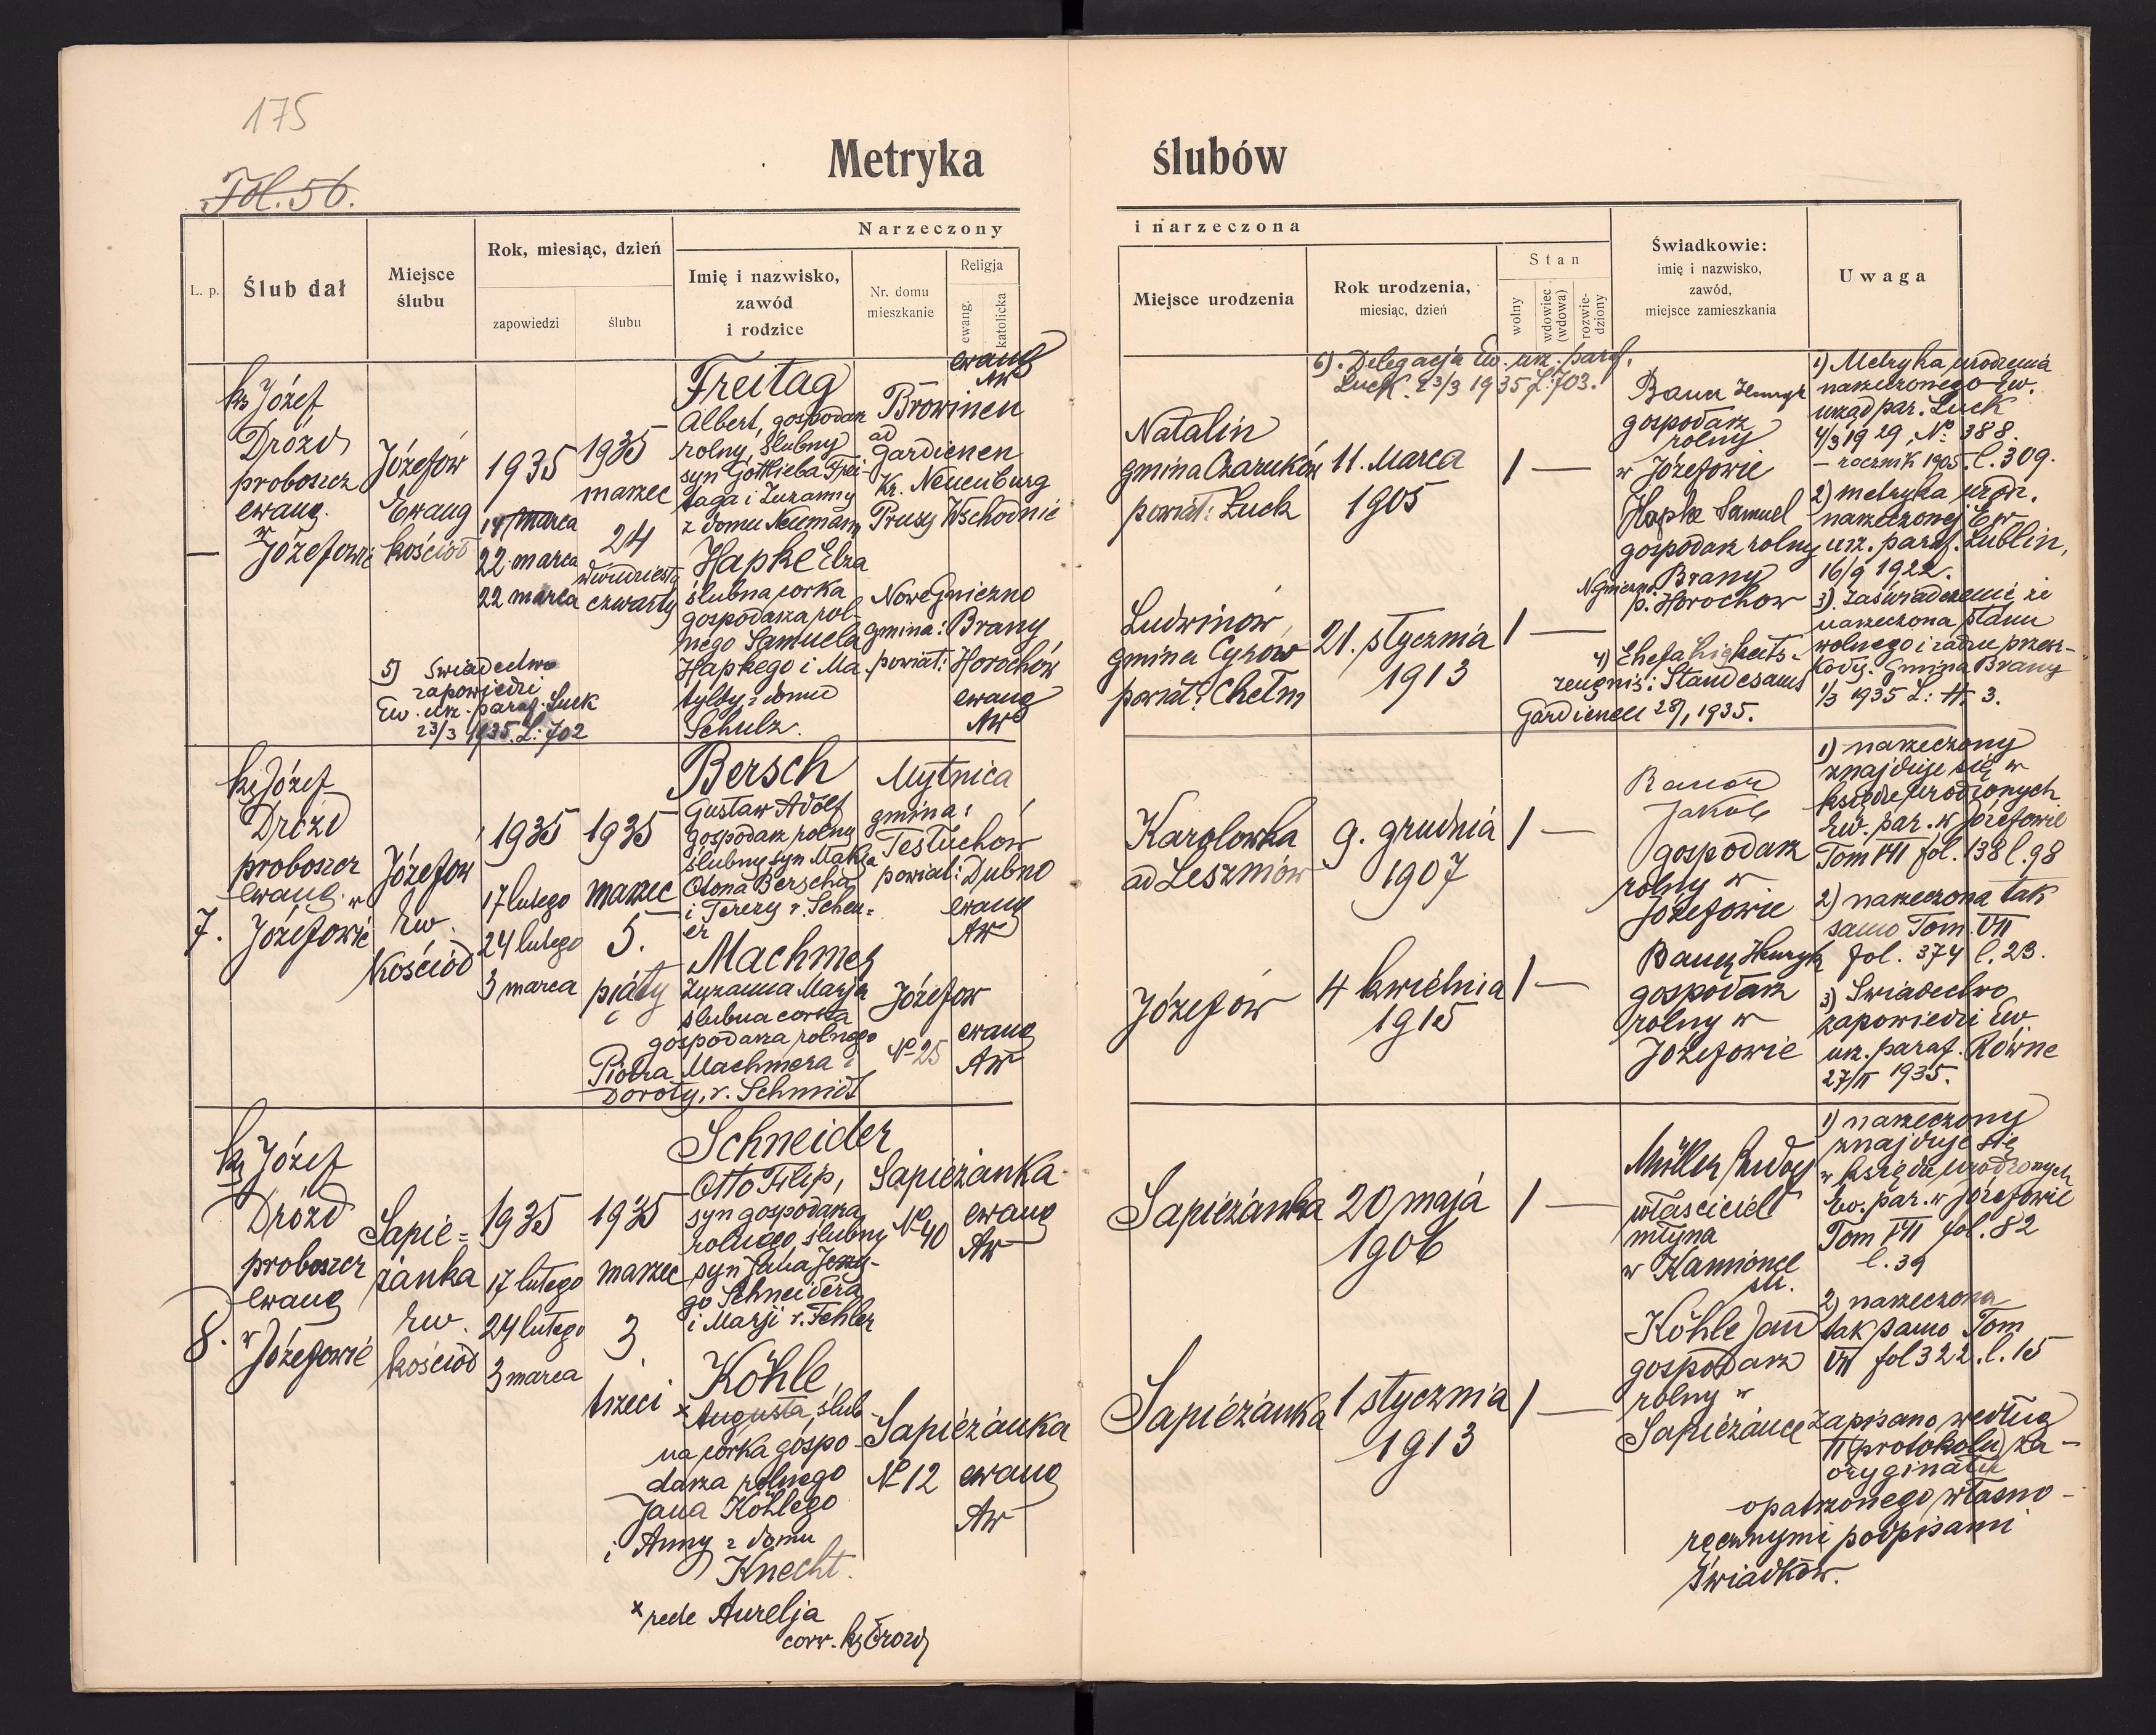 175
Fol. 56.
Metryka ślubów
L. p.
Ślub dał
Miejsce
ślubu
Rok, miesiąc, dzień
zapowiedzi
ślubu
Narzeczony
Imię i nazwisko,
zawód
i rodzice
Nr. domu
mieszkanie
Religja
ewang.
katolicka
i narzeczona
Miejsce urodzenia
Rok urodzenia,
miesiąc, dzień
Stan
wolny
wdowiec
(wdowa)
rozwie-
dziony
Świadkowie:
imię i nazwisko,
zawód,
miejsce zamieszkania
Uwaga
—
ks Józef
Drózd
proboszcz
ewang.
w
Józefowie
Józefów
Ewang
kościół
1935
14 marca
22 marca
22 marca
1935
marzec
24
dwudziesty
czwarty
5) Świadectwo
zapowiedzi
Ew. urz. paraf. Łuck
23/3 1935. L: 702
Freitag
Albert, gospodarz
rolny, ślubny
syn Gottlieba Frei-
taga i Zuzanny
z domu Neumann
Browinen
ad
Gardienen
Kr. Neuenburg
Prusy Wschodnie
ewang
AW
Hapke Elza
ślubna córka
gospodarza rol-
nego Samuela
Hapkego i Ma
tyldy z domu
Schulz.
Nowe Gniezno
gmina: Brany
powiat: Horochów
ewang
AW
6). Delegacja Ew. urz. paraf.
Łuck. 23/3 1935 L: 703.
Natalin
gmina Czaruków
powiat: Łuck
11. Marca
1905
1 —
Ludwinów,
gmina Cyców
powiat: Chełm
21. stycznia
1913
1 —
Bauer Henryk
gospodarz
rolny
w Józefowie
Hapke Samuel
gospodarz rolny
N.Gniezno Brany
p. Horochów
4) Ehefähigkeits-
zeugnis: Standesamt
Gardienen 28/1, 1935.
1) Metryka urodzenia
narzeczonego Ew.
urząd par. Łuck
4/3 1929, No 388.
— rocznik 1905. l. 309.
2) metryka urodz.
narzeczonej Ew.
urz. paraf. Lublin,
16/9 1922.
3) Zaświadczenie, że
narzeczona stanu
wolnego i żadne przesz-
kody. Gmina Brany
1/3 1935 L: H. 3.
7.
ks Józef
Drózd
proboszcz
ewang. w
Józefowie
Józefow
Ew.
Kościół
1935
17 lutego
24 lutego
3 marca
1935
marzec
5.
piąty
Bersch
Gustaw Adolf
gospodarz rolny
ślubny syn
Otona Berscha
i Terezy r. Scheu=
er
Mytnica
gmina:
Tesłuchów
powiat: Dubno
ewang
AW
Machmer
Zuzanna Marja
ślubna corka
gospodarza rolnego
Piotra Machmera i
Doroty, r. Schmidt
Józefow
No 25
ewang
AW
Karolowka
ad Leszniów
9. grudnia
1907
1 —
Józefów
4 kwietnia
1915
1 —
Bauer
Jakob
gospodarz
rolny w
Józefowie
Bauer Henryk
gospodarz
rolny w
Józefowie
1) narzeczony
znajduje się w
księdze urodzonych
Ew. par. w Józefowie
Tom VII fol. 138 l. 98
2) narzeczona tak
samo Tom. VII
fol. 374 l. 23.
3) Świadectwo
zapowiedzi Ew.
urz. paraf. Równe
27/II 1935.
8.
ks Józef
Drózd
proboszcz
ewang
w
Józefowie
Sapie=
żanka
Ew.
kościół
1935
17 lutego
24 lutego
3 marca
1935
marzec
3
trzeci
Schneider
Otto Filip,
syn gospodarza
rolnego ślubny
syn Jana Jerze-
go Schneidera
i Marji r. Fehler
Sapieżanka
No 40
ewang
AW
Köhle
x Augusta, ślub
na corka gospo-
darza rolnego
Jana Köhlego
i Anny z domu
Knecht.
Sapieżanka
No 12
ewang
AW
x rede Aurelja
corr. ks Drozd
Sapieżanka
20 maja
1906
1 —
Sapieżanka
1 stycznia
1913
1 —
Müller Ludwg
właściciel
młyna
w Kamionce
str.
Köhle Jan
gospodarz
rolny w
Sapieżance
1) narzeczony
znajduje się
w księdze urodzonych
Ew. par. w Józefowie
Tom VII fol. 82
l. 39
2) narzeczona
tak samo Tom
VII fol 322. l. 15
Zapisano według
protokołu za-
oryginału
opatrzonego własno-
ręcznymi podpisami
świadków.